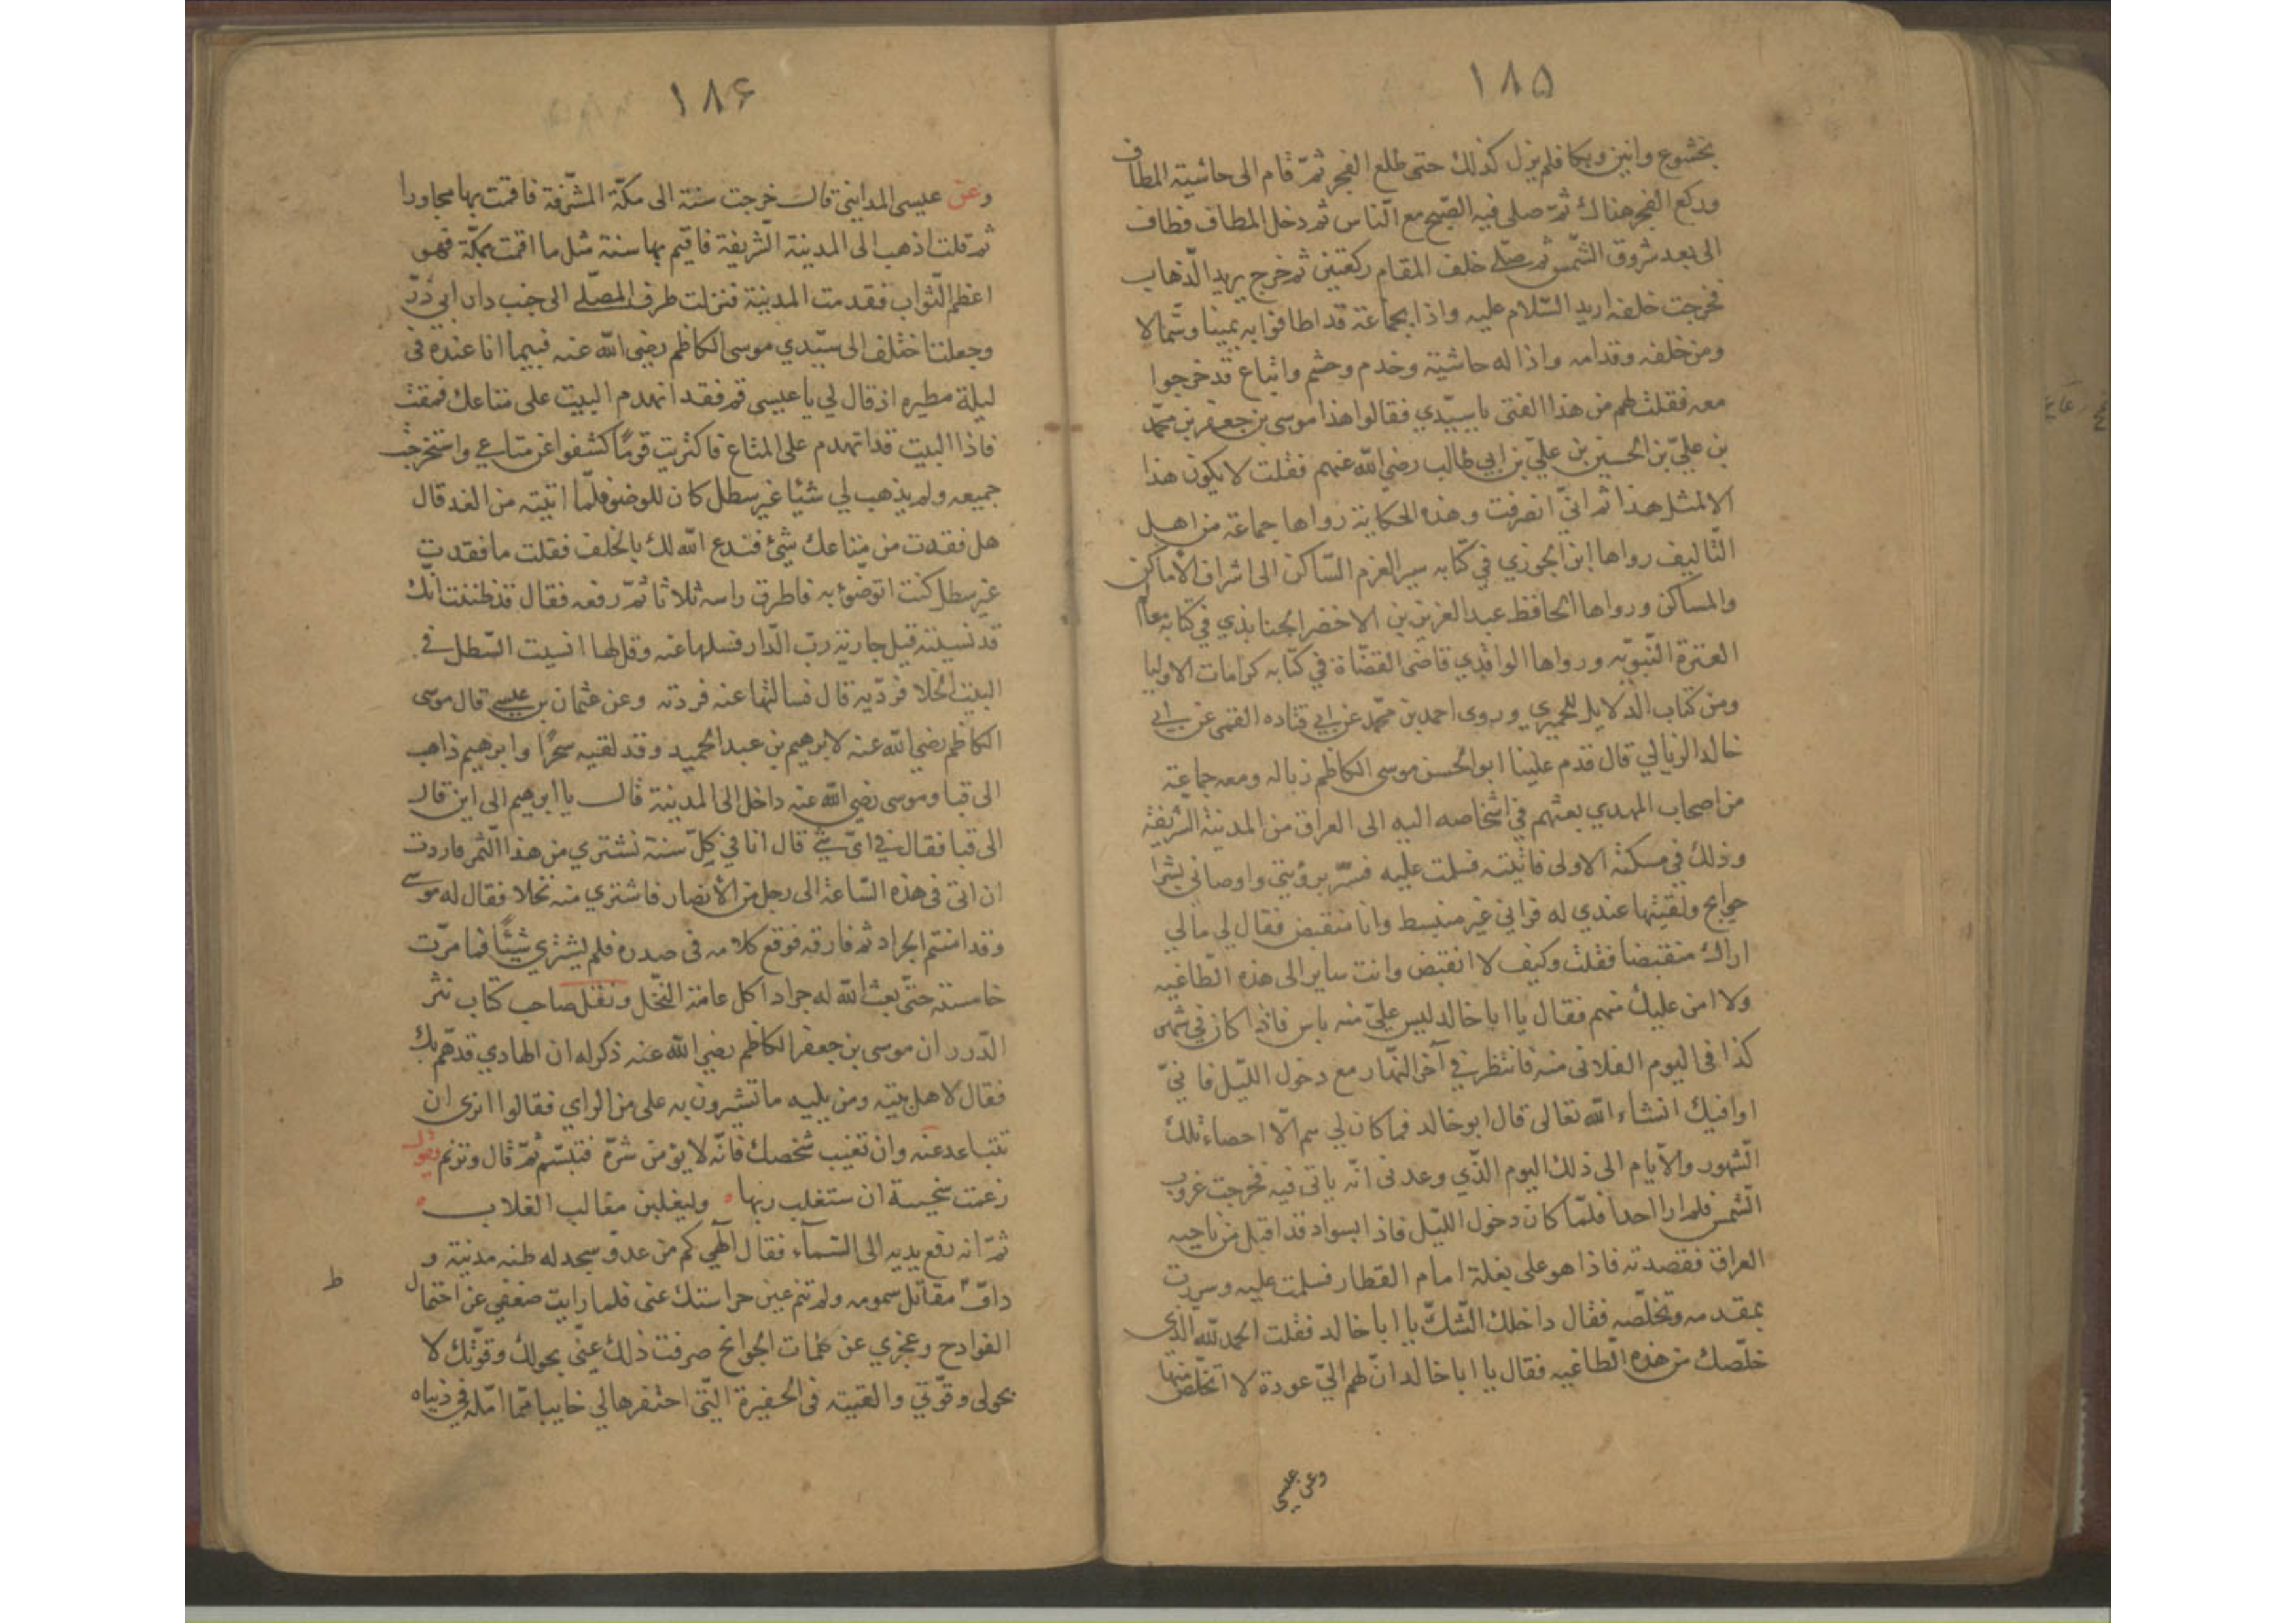 ١٨٥
بخشوع وانين وبكا فلم يزل كذلك حتى طلع الفجر ثمّ قام الى حاشيته المطاف
وركع الفجر هناك ثمّ صلى فيه الصّبح مع النّاس ثم دخل المطاف فطاف
الى بعد شروق الشّمس ثم صلّى خلف المقام ركعتين ثم خرج يريد الذّهاب
فخرجت خلفه اريد السّلام عليه واذا بجماعة قد اطافوا به يمينا وشمالا
ومن خلفه وقدامه واذا له حاشية وخدم وحشم واتباع قد خرجوا
معه فقلت لهم من هذا الفتى يا سيّدي فقالوا هذا موسى بن جعفر بن محمّد
بن عليّ بن الحسين بن عليّ بن ابي طالب رضي الله عنهم فقلت لا يكون هذا
الا لمثل هذا ثم انّي انصرفت وهذه الحكاية رواها جماعة من اهل
التّاليف رواها ابن الجوزي في كتابه سير العزم السّاكن الى اشراف الأماكن
والمساكن ورواها الحافظ عبد العزيز بن الاخضر الجنابذي في كتابه معالم
العترة النّبويّه ورواها الواقدي قاضى القضّاة في كتابه كرامات الاوليا
ومن كتاب الدلايل للحميري وروى احمد بن محمّد عن ابي قتاده القمى عن ابي
خالد الزبالي قال قدم علينا ابو الحسن موسى الكاظم زباله ومعه جماعة
من اصحاب المهدي بعثهم في اشخاصه اليه الى العراق من المدينة الشّريفة
وذلك في مسكنه الاولى فاتيته فسلمت عليه فسّر برؤيتي واوصاني بشرا
حوايج ولقيتها عندي له فراني غير منبسط وانا منقبض فقال لي مالي
اراك منقبضا فقلت وكيف لا انقبض وانت ساير الى هذه الطّاغيه
ولا امن عليك منهم فقال يا ابا خالد ليس عليّ منه باس فاذا كان في شهر
كذا في اليوم الفلانى منه فانتظرني آخر النّهار مع دخول اللّيل فانيّ
اوافيك انشاء الله تعالى قال ابو خالد فما كان لي هم الّا احصاء تلك
الشّهور والأيام الى ذلك اليوم الّذي وعدنى انّه ياتى فيه فخرجت غروب
الشّمس فلم ار احدا فلمّا كان دخول اللّيل فاذا بسواد قد اقبل من ناحيه
العراق فقصدته فاذا هو على بغلة امام القطار فسلمت عليه وسررت
بمقدمه وتخلّصه فقال داخلك الشّكّ يا ابا خالد فقلت الحمد لله الذى
خلّصك من هذه الطاغيه فقال يا ابا خالد انّ لهم اليّ عودة لا اتخلّص منها
وعن عيسى
١٨۶
وعن عيسى المدايني قالت خرجت سنة الى مكّة المشّرفة فاقمت بها مجاورا
ثمّ قلت اذهب الى المدينة الشّريفة فاقيم بها سنة مثل ما اقمت بمكّة فهو
اعظم الثّواب فقدمت المدينة فنزلت طرف المصلّى الى جنب دار ابي ذرّ
وجعلت اختلف الى سيّدي موسى الكاظم رضى الله عنه فبينما انا عنده في
ليلة مطيره اذ قال لي يا عيسى قم فقد انهدم البيت على متاعك فقمت
فاذا البيت قد انهدم على المتاع فاكتريت قومًا كشفوا عن متاعي واستخرجت
جميعه ولم يذهب لي شيئا غير سطل كان للوضوء فلمّا اتيته من الغد قال
هل فقدت من متاعك شيئ فندع الله لك بالخلف فقلت ما فقدت
غير سطل كنت اتوضّؤ به فاطرق راسه ثلاثا ثمّ رفعه فقال قد ظننت انّك
قد نسيته قبل جارية ربّ الدّار فسلها عنه وقل لها انسيت السّطل في
البيت الخلا فردّيه قال فسالتها عنه فردته وعن عثمان بن عيسى قال موسى
الكاظم رضي الله عنه لابرهيم بن عبد الحميد وقد لقيه سحرًا وابرهيم ذاهب
الى قبا وموسى رضي الله عنه داخل الى المدينة قالت يا ابرهيم الى اين قال
الى قبا فقال في ايّ شئ قال انا في كلّ سنة نشتري من هذا التّمر فاردت
ان اتى في هذه السّاعة الى رجل من الأنصار فاشتري منه نخلا فقال له موسى
وقد امنتم الجراد ثم فارقه فوقع كلامه في صدره فلم يشتري شيئًا فما مرّت
خامسة حتّى بعث الله له جرادا اكل عامة النّخل ونقل صاحب كتاب نثر
الدّرر ان موسى بن جعفر الكاظم رضي الله عنه ذكر له ان الهادي قد همّ بك
فقال لاهل بيته ومن يليه ما تشيرون به على من الراي فقالوا نرى ان
تتباعد عنه وان تغيب شخصك فانّه لا يؤمن شرّه فتبسّم ثمّ قال وترنم بقول
زعمت سخيسة ان ستغلب ربها ٥ وليغلبن مغالب الغلاب ٥
ثمّ انه رفع يديه الى السّمآء فقال آلهي كم من عدوّ سجد له ظنه مدينة و
دافّ مقاتل سمومه ولم تنم عين حراستك عنى فلما رايت ضعفي عن احتمال
ط
الفوادح وعجزي عن ملمات الجوائح صرفت ذلك عنّي بحولك وقوّتك لا
بحولى وقوّتي والقيته في الحفيرة الّتى احتفرها لي خايبا ممّا امّله في دنياه